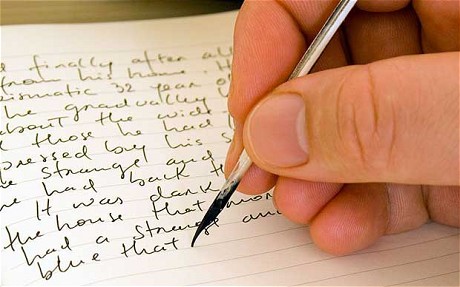 d finally after all
from his home. H
rismatic 32 year o
he gradually
about the wide
d those he had
pressed by his s
e strange and
e had back t
It was
the house that mor
had a strange an
blue that